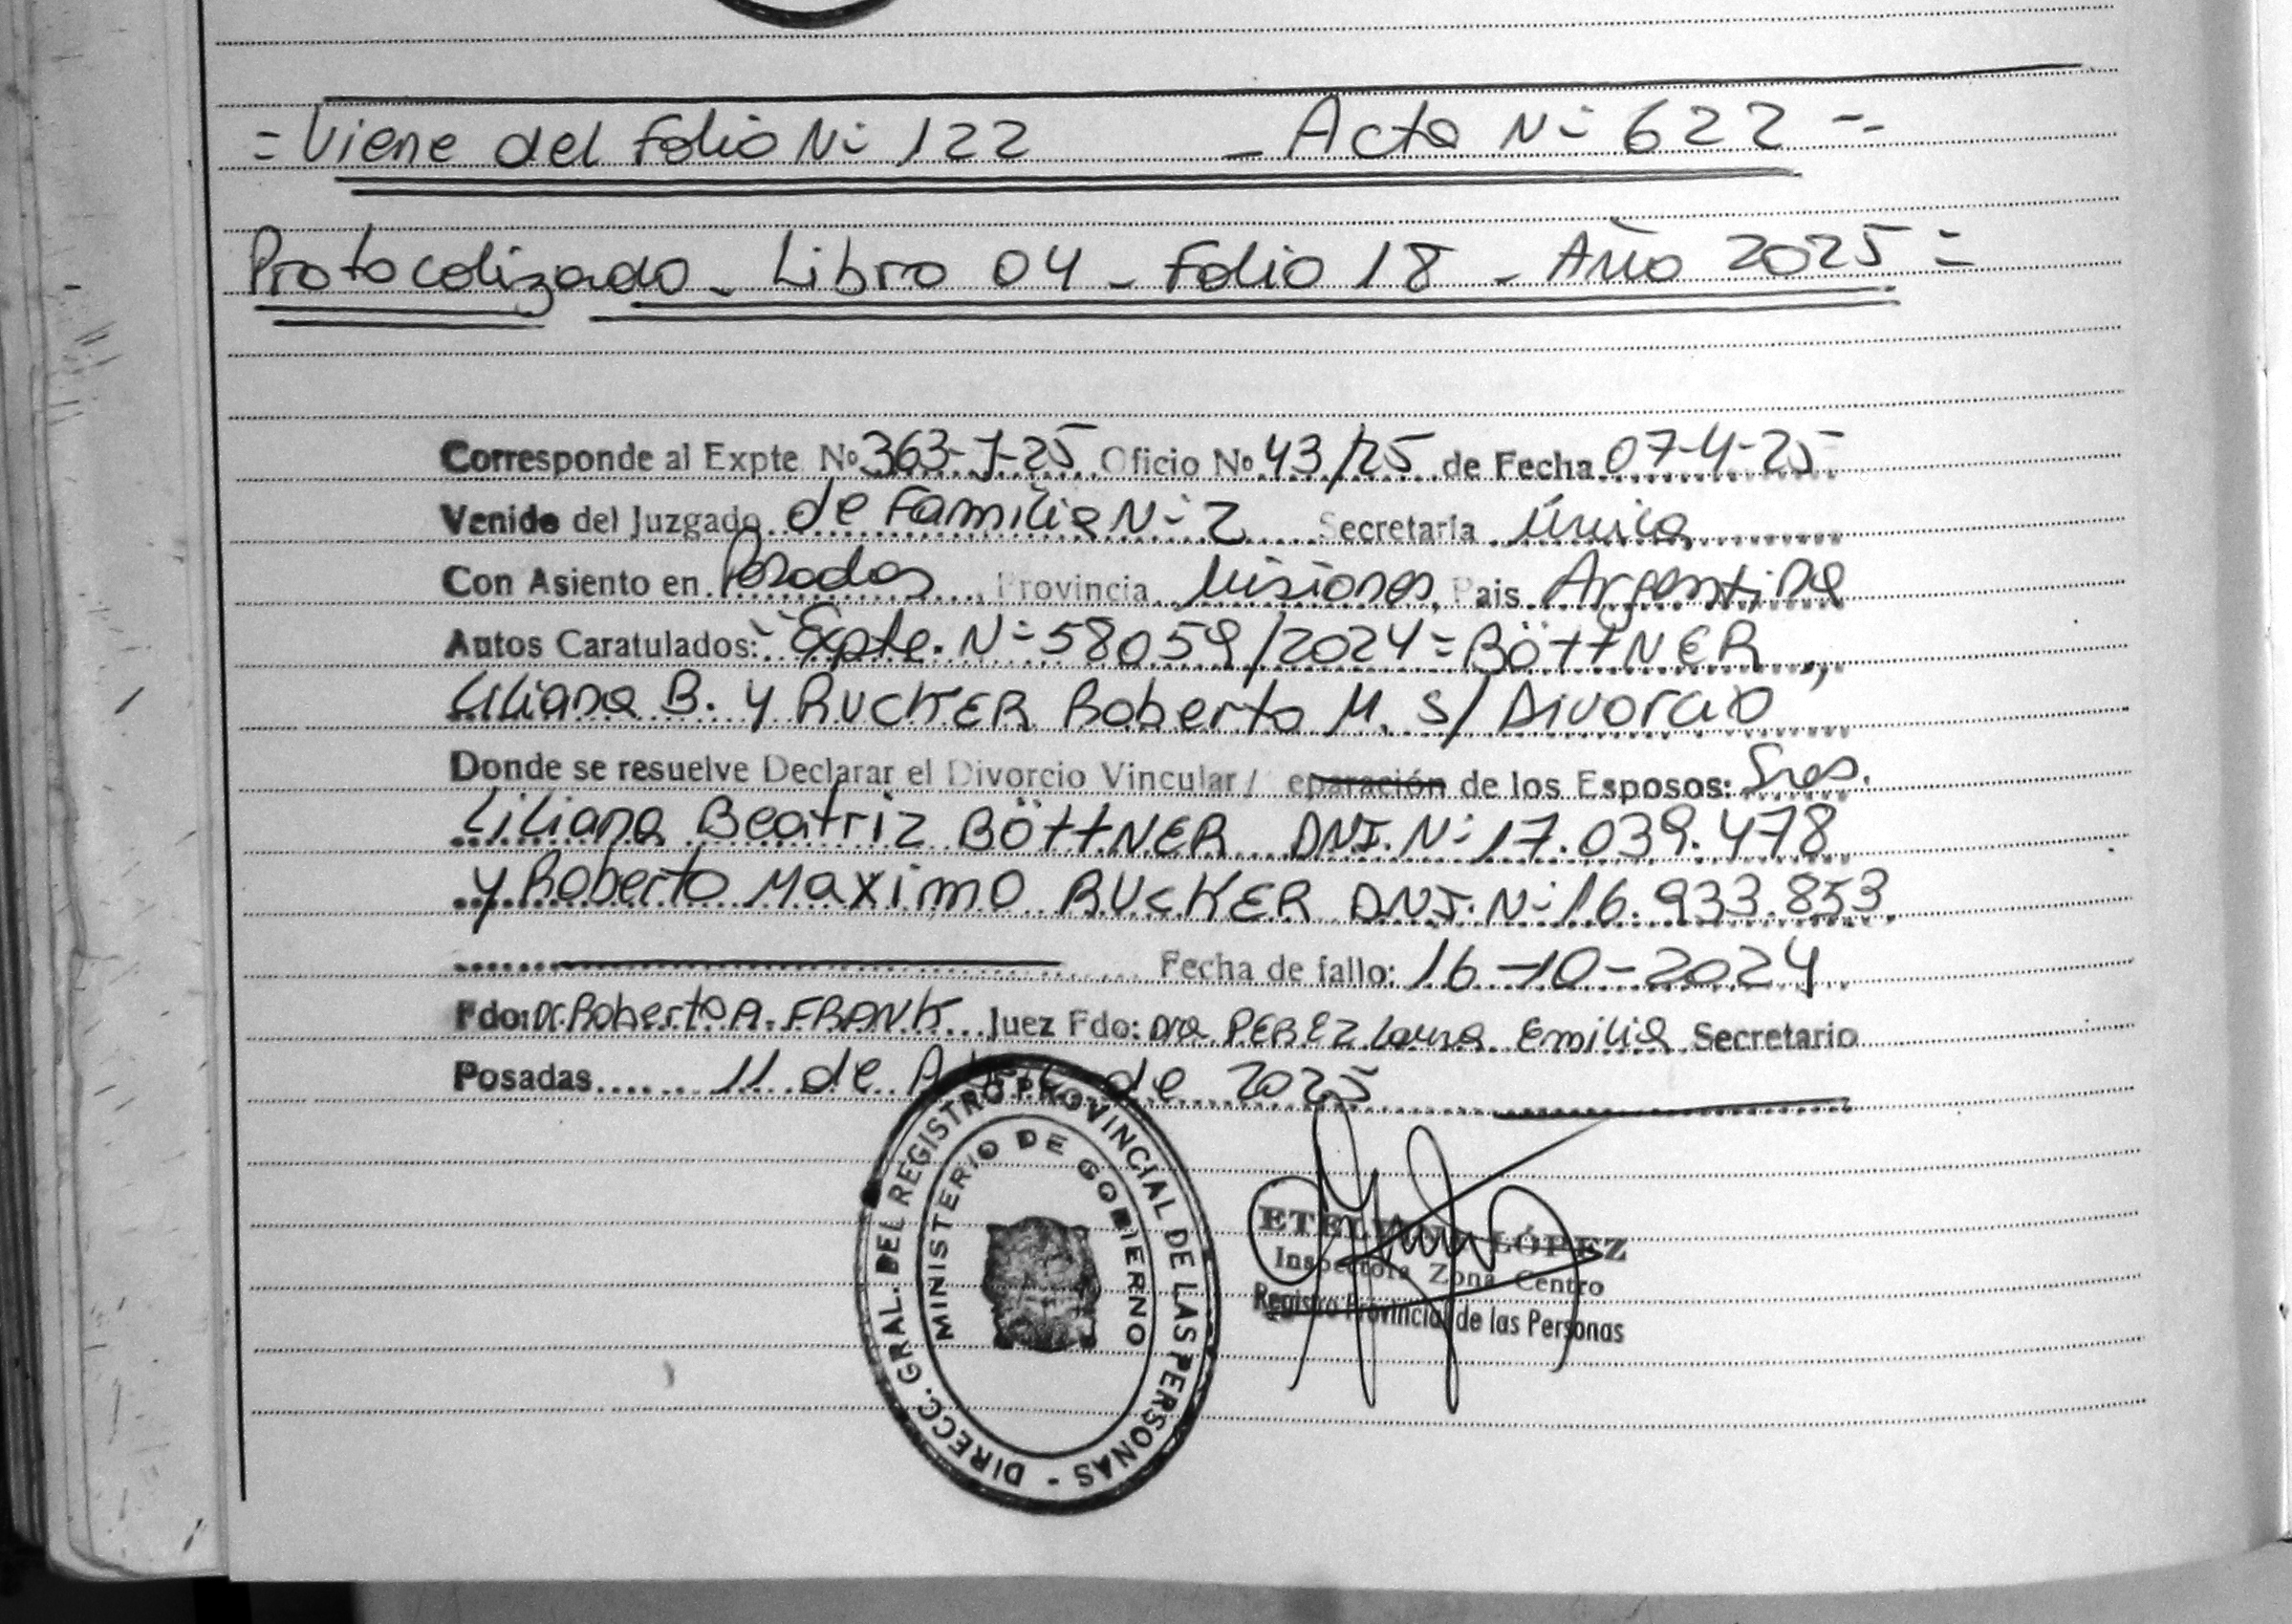 = Viene del Folio Nº 122 - Acta Nº 622 =
Protocolizado - Libro 04 - Folio 18 - Año 2025 =
Corresponde al Expte Nº 363-7-25 Oficio Nº 43/25 de Fecha 07-4-25
Venido del Juzgado de Familia Nº 2 Secretaria Única
Con Asiento en Posadas, Provincia Misiones, Pais Argentina
Autos Caratulados: Expte. Nº 58059/2024 = BÖTTNER,
Liliana B. y RUCKER Roberto M. S/ Divorcio
Donde se resuelve Declarar el Divorcio Vincular / eparación de los Esposos: Sres.
Liliana Beatriz BÖTTNER DNI. Nº 17.039.478
y Roberto Maximo RUCKER DNI. Nº 16.933.853.
Fecha de fallo: 16-10-2024
Fdo: Dr. Roberto A. FRANK Juez Fdo: Dra PEREZ Laura Emilia Secretario
Posadas 11 de Abril de 2025
DIRECC. GRAL. DEL REGISTRO PROVINCIAL DE LAS PERSONAS -
MINISTERIO DE GOBIERNO
ETELVINA LÓPEZ
Inspectora Zona Centro
Registro Provincial de las Personas